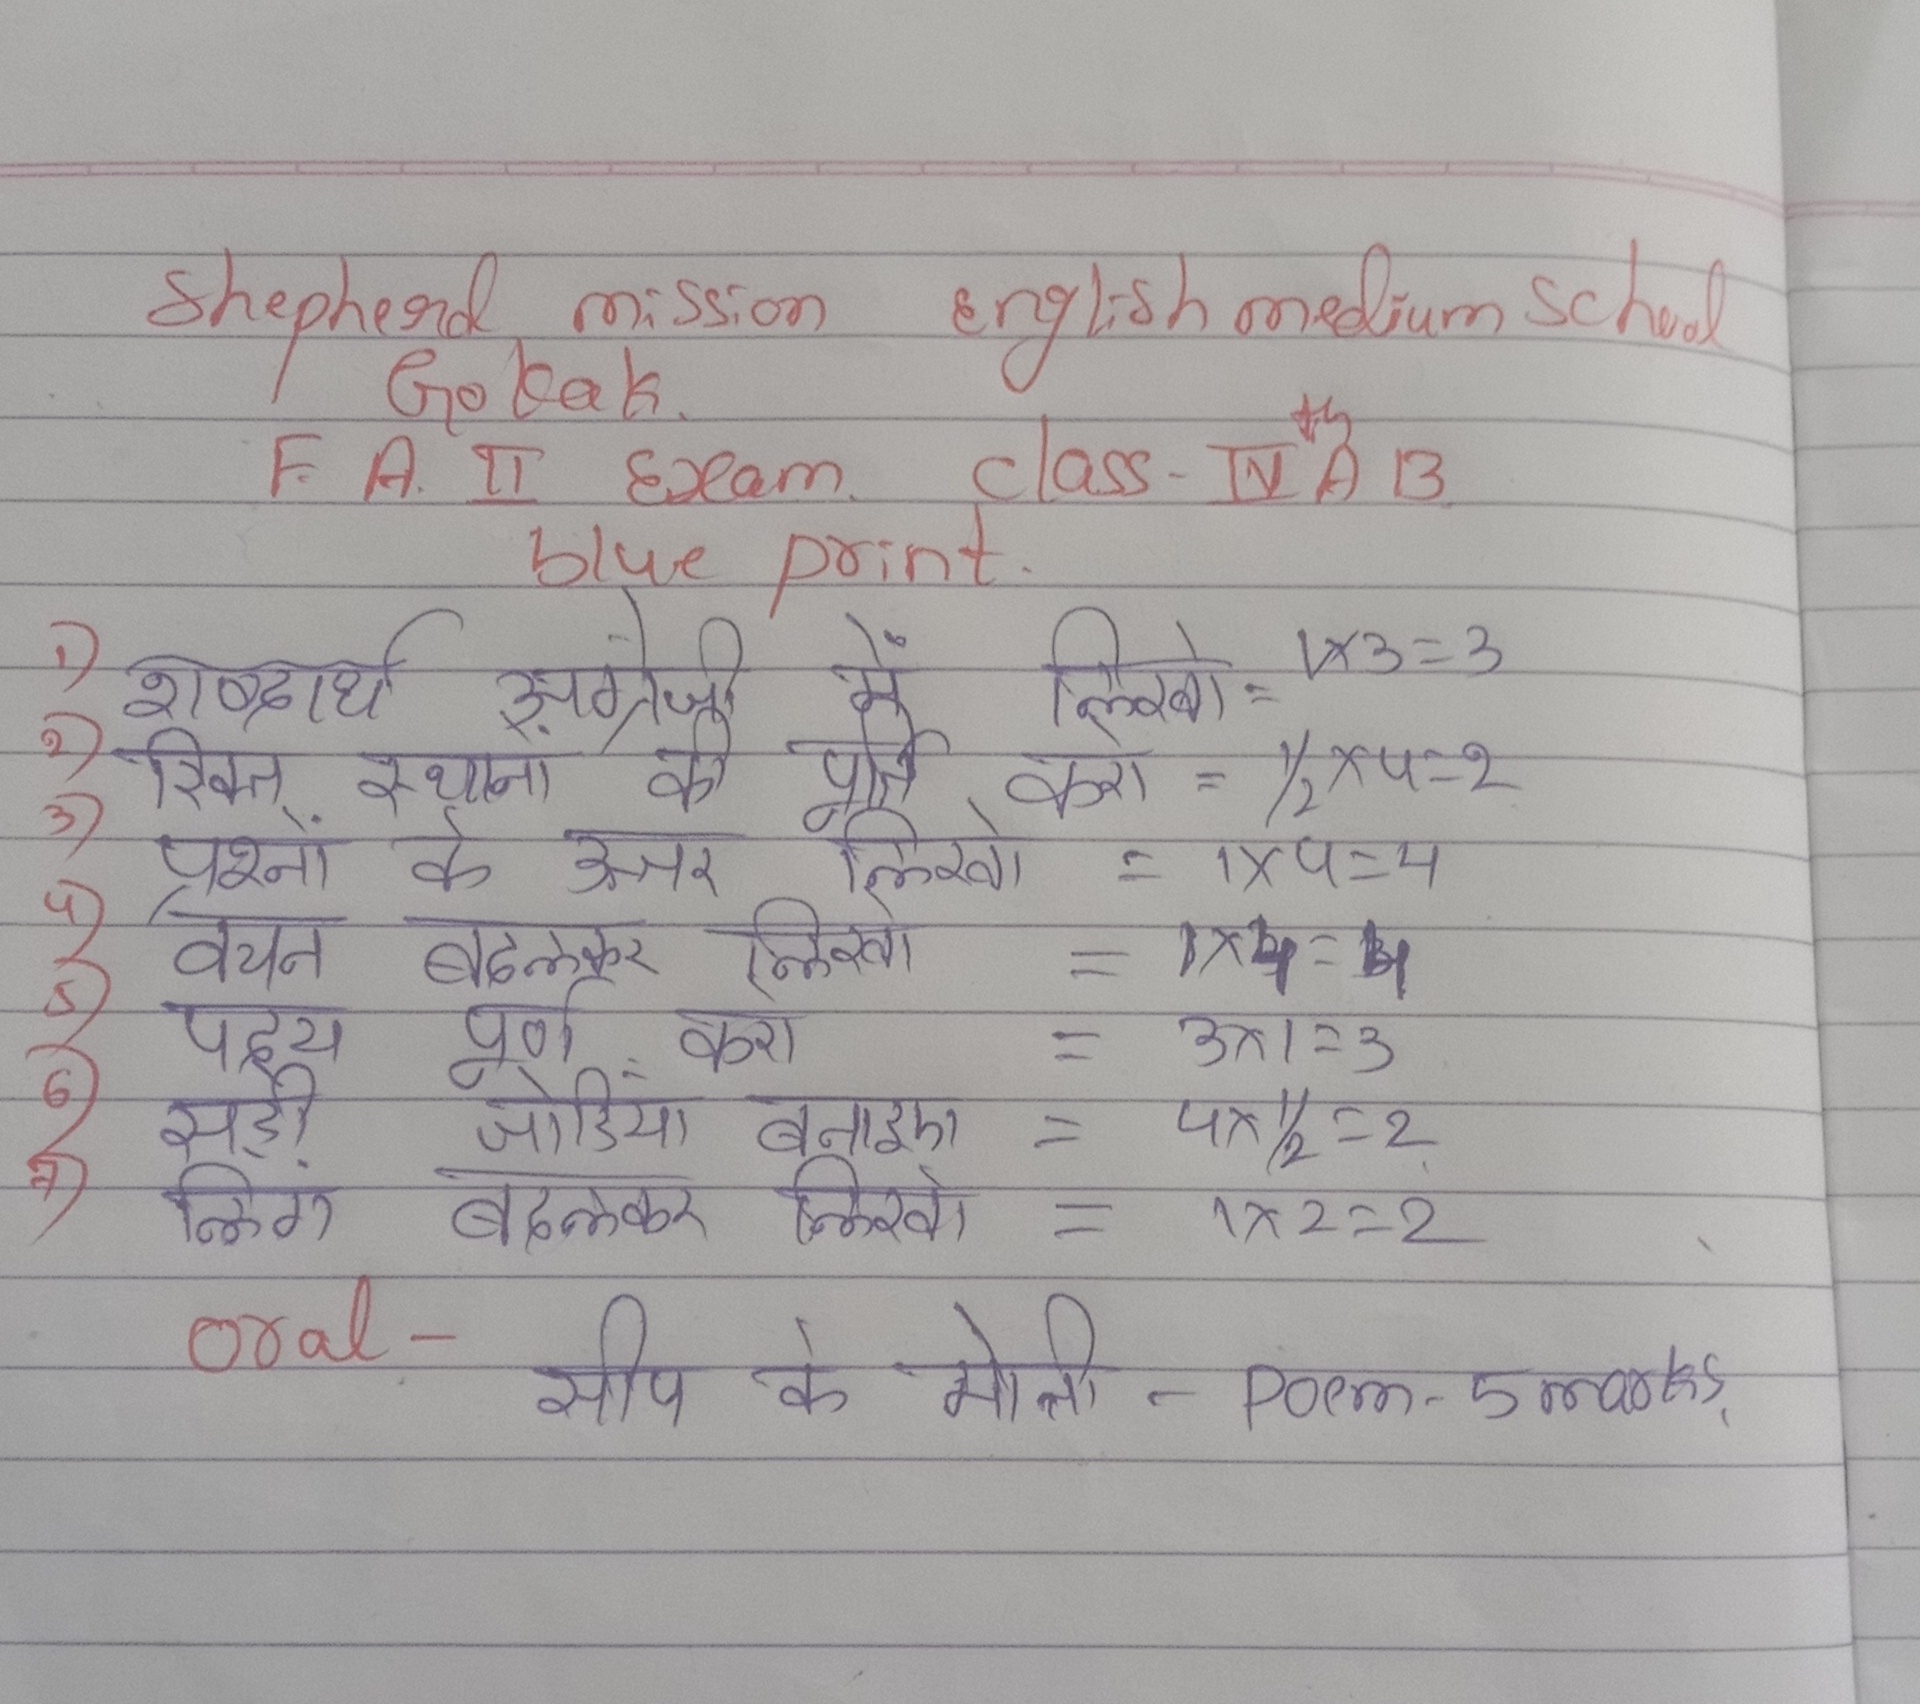 Shepherd mission English medium School
Gokak.
F. A. II Exam. class - IV th A B
blue print.
1) शब्दार्थ अंग्रेजी में लिखो = 1x3=3
2) रिक्त स्थानों की पूर्ति करो = 1/2 x4=2
3) प्रश्नों के उत्तर लिखो = 1x4=4
4) वचन बदलकर लिखो = 1x4=4
5) पद्य पूर्ण करो = 3x1=3
6) सही जोडियाँ बनाइए = 4x1/2=2
7) लिंग बदलकर लिखो = 1x2=2
oral - सीप के मोती - Poem - 5 marks,